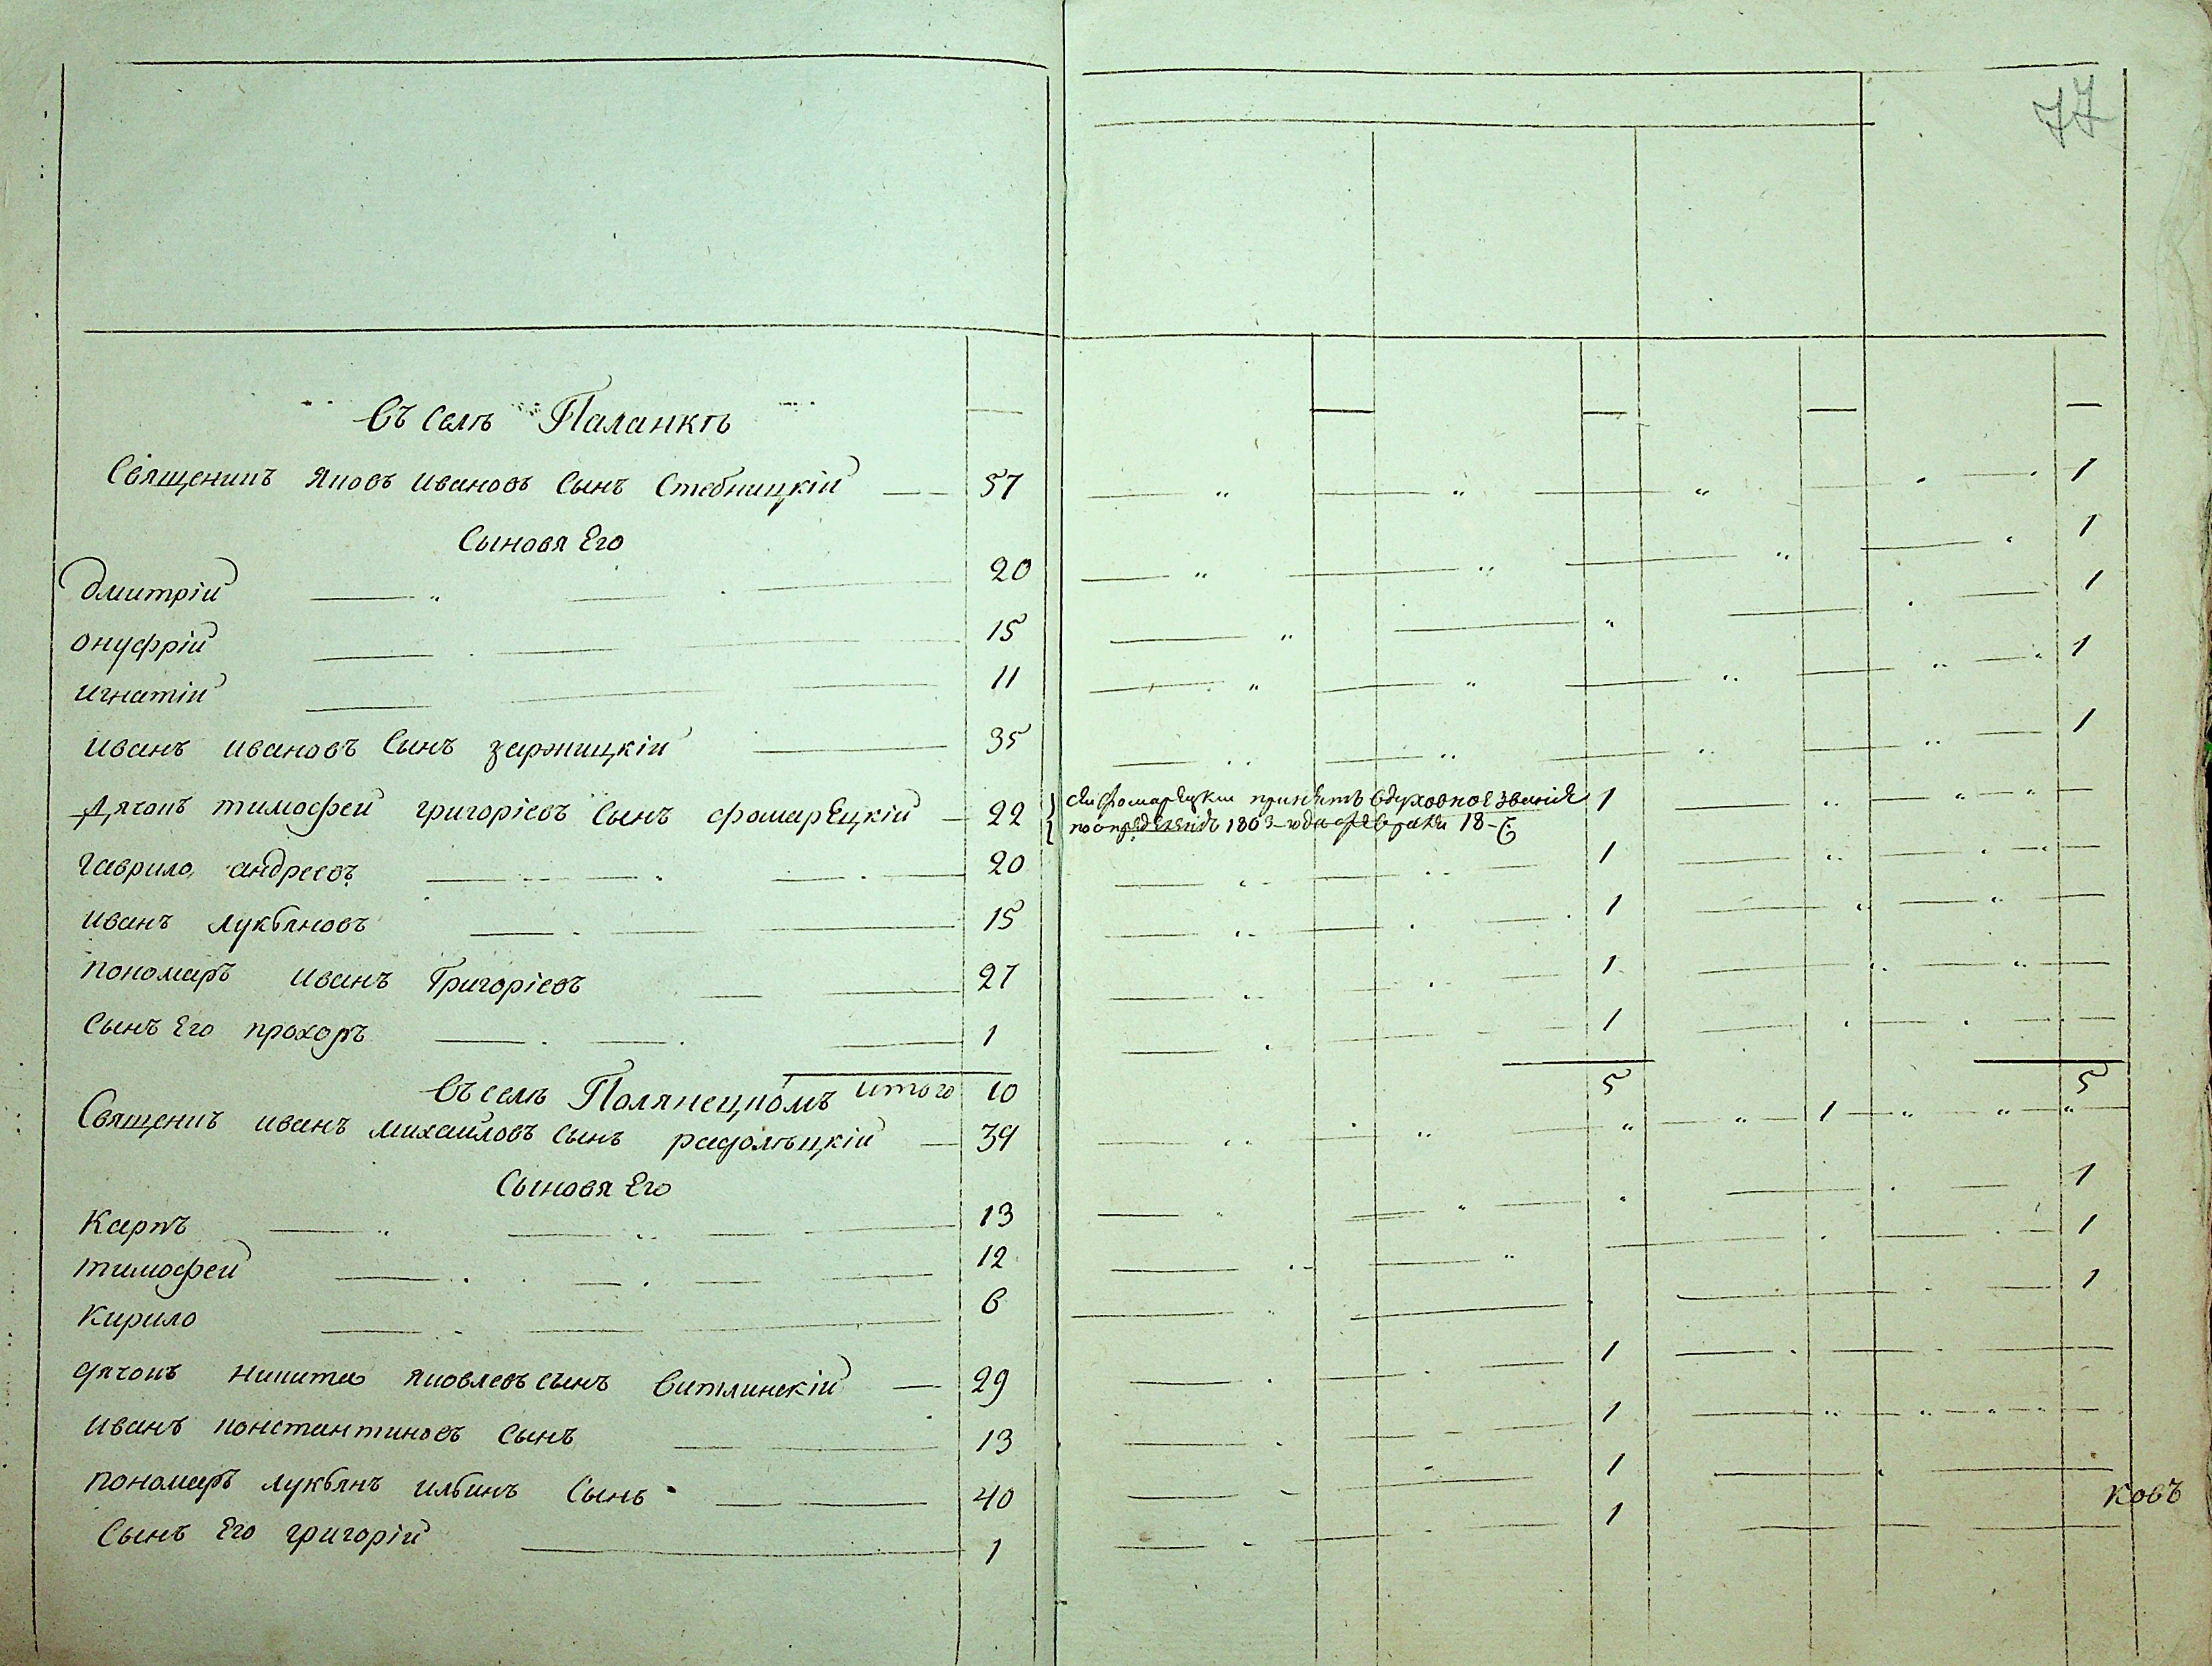 77
Въ селѣ Паланкѣ
Священикъ Яковъ Ивановъ Сынъ Стебницкій 57 1
Сыновя Его
Дмитрій 20 1
онуфрій 15 1
игнатій 11 1
иванъ ивановъ Сынъ заржицкій 35 1
Дячокъ тимофей григоріевъ Сынъ фомарецкій 22 сей фомарецкій принятъ вдуховное званіе 1
поопределенію 1803-года февраля 18-го
гаврило андреевъ 20 1
иванъ лукьяновъ 15 1
пономарь иванъ Григоріевъ 27 1
Сынъ Его прохоръ 1 1
итого 10 5 5
Въ селѣ Полянецкомъ
Священикъ иванъ михайловъ сынъ радолѣцкій 39 1
Сыновя Его
Карпъ 13 1
тимофей 12 1
Кирило 6 1
дячокъ никита яковлевъ сынъ витлинскій 29 1
иванъ константиновъ Сынъ 13 1
пономарь лукьянъ ильинъ Сынъ 40 1
ковъ
Сынъ Его григорій 1 1